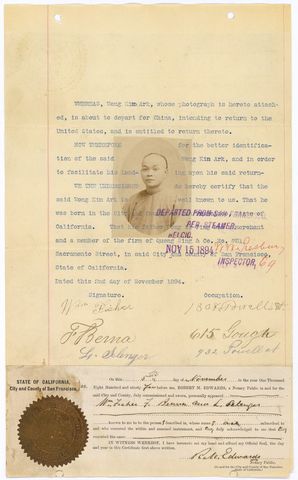 WHEREAS, Wong Kim Ark, whose photograph is hereto attach-
ed, is about to depart for China, intending to return to the
United States, and is entitled to return thereto.
NOW THEREFORE for the better identifica-
tion of the said Wong Kim Ark, and in order
to facilitate his land- upon his said return-
WE THE do hereby certify that the
said Wong Kim Ark is well known to us. That he
was born in the City of
California. That merchant
and a member of the firm of Quong Sing & Co. No. 751
Sacramento Street, in said City and County of San Francisco,
State of California.
Dated this 2nd day of November 1894.
DEPARTED FROM SAN FRAN
PER STEAMER,
BELGIC.
NOV 15 1894
INSPECTOR,
Signature. Occupation.
Wm Fisher
F Benna 615 Gough
L. Selenger 932 Powell st
STATE OF CALIFORNIA,
City and County of San Francisco,
On this 5th day of November in the year One Thousand
Eight Hundred and Ninety Four before me, ROBERT M. EDWARDS, a Notary Public in and for the
said City and County, duly commissioned and sworn, personally appeared
Wm Fisher F. Benna and L. Selenger
known to me to be the persons described in, whose names are subscribed to
and who executed the within and annexed instrument, and they duly acknowledged to me that they
executed the same.
IN WITNESS WHEREOF, I have hereunto set my hand and affixed my Official Seal, the day
and year in this Certificate first above written.
R. M. Edwards
Notary Public,